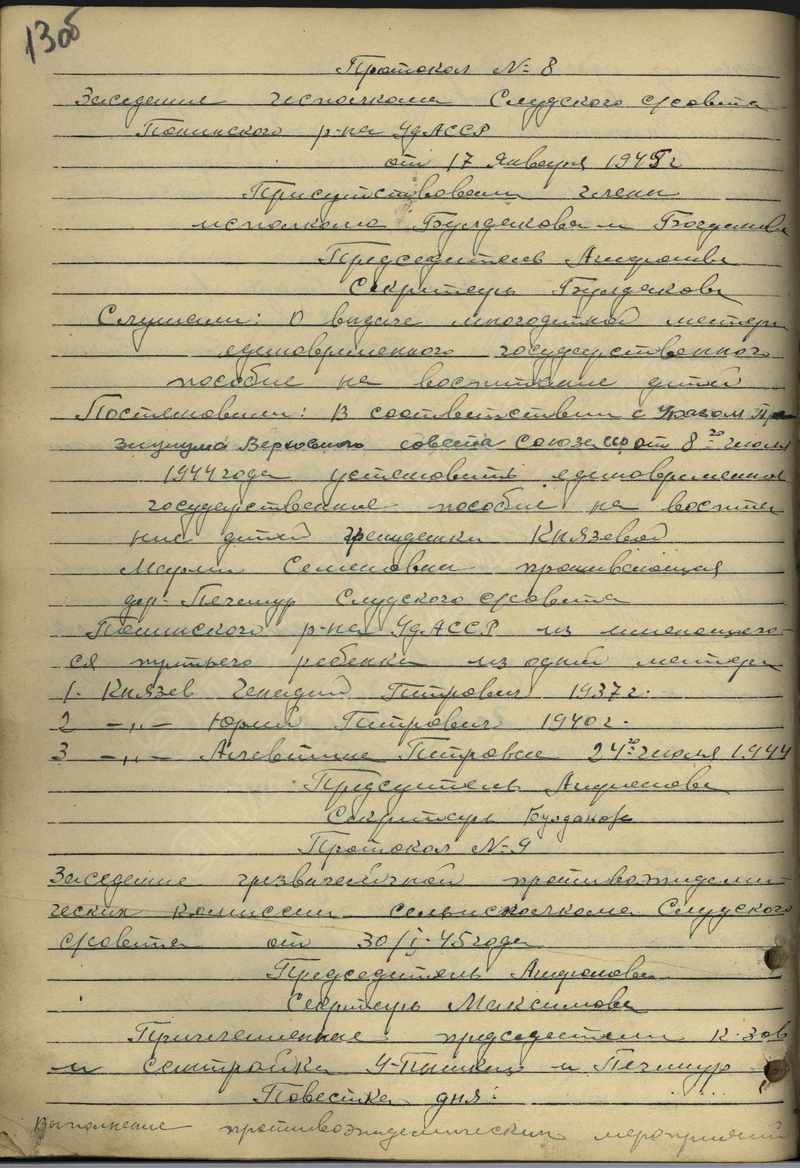 13об
Протокол № 8
Заседание исполкома Слудского с/совета
Понинского р-на УдАССР
от 17 Января 1945 г
Присутствовали члены
исполкома Булдакова и Богданова
Председатель Андронова
Секретарь Булдакова
Слушали: О выдаче многодетной матери
единовременного государственного
пособие на воспитание детей
Постановили: В соответствии с Указом Пре
зидиума Верховного совета Союза от 8го июля
1944 года установить единовременное
государственное пособие на воспита
ние детей гражданки Князевой
Марии Семеновны проживающая
дер. Печешур Слудского с/совета
Понинского р-на УдАССР из имеющего-
ся третьего ребенка из одной матери
1. Князев Генадий Петрович 1937 г.
2 -„- Юрий Петрович 1940 г.
3 -„- Алевтина Петровна 24го июля 1944
Председатель Андронова
Секретарь Булдакова
Протокол № 9
Заседание чрезвычайной противоэпидеми
ческих комиссии сельисполкома Слудского
с/совета от 30/I-45 года
Председатель Андронова
Секретарь Максимова
Приглашенные: председатели к-зов
и сантройка и Печешур
Повестка дня:
Выполнение противоэпидемических мероприятий